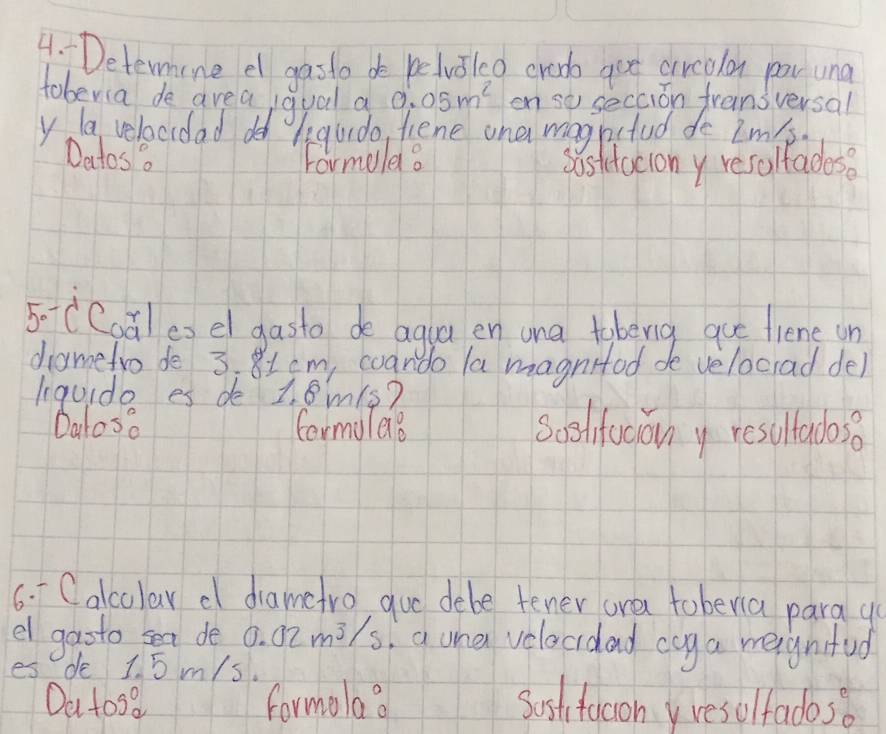 4.- Determine el gasto de petróleo crudo que circular por una
tobería de area igual a 0.05m² en su sección transversal
y la velocidad del líquido, tiene una magnitud de 2m/s.
Datos: Formula: Sustitución y resultados:
5.- ¿Cuál es el gasto de agua en una tubería que tiene un
diametro de 3.81 cm, cuando la magnitud de velociad del
liquido es de 1.8 m/s?
Datos: formula: Sustitución y resultados:
6.- Calcular el diametro que debe tener una tobería para qu
el gasto sea de 0.02 m³/s. a una velocidad cuya magnitud
es de 1.5 m/s.
Datos: formola: Sustitucion y resultados: